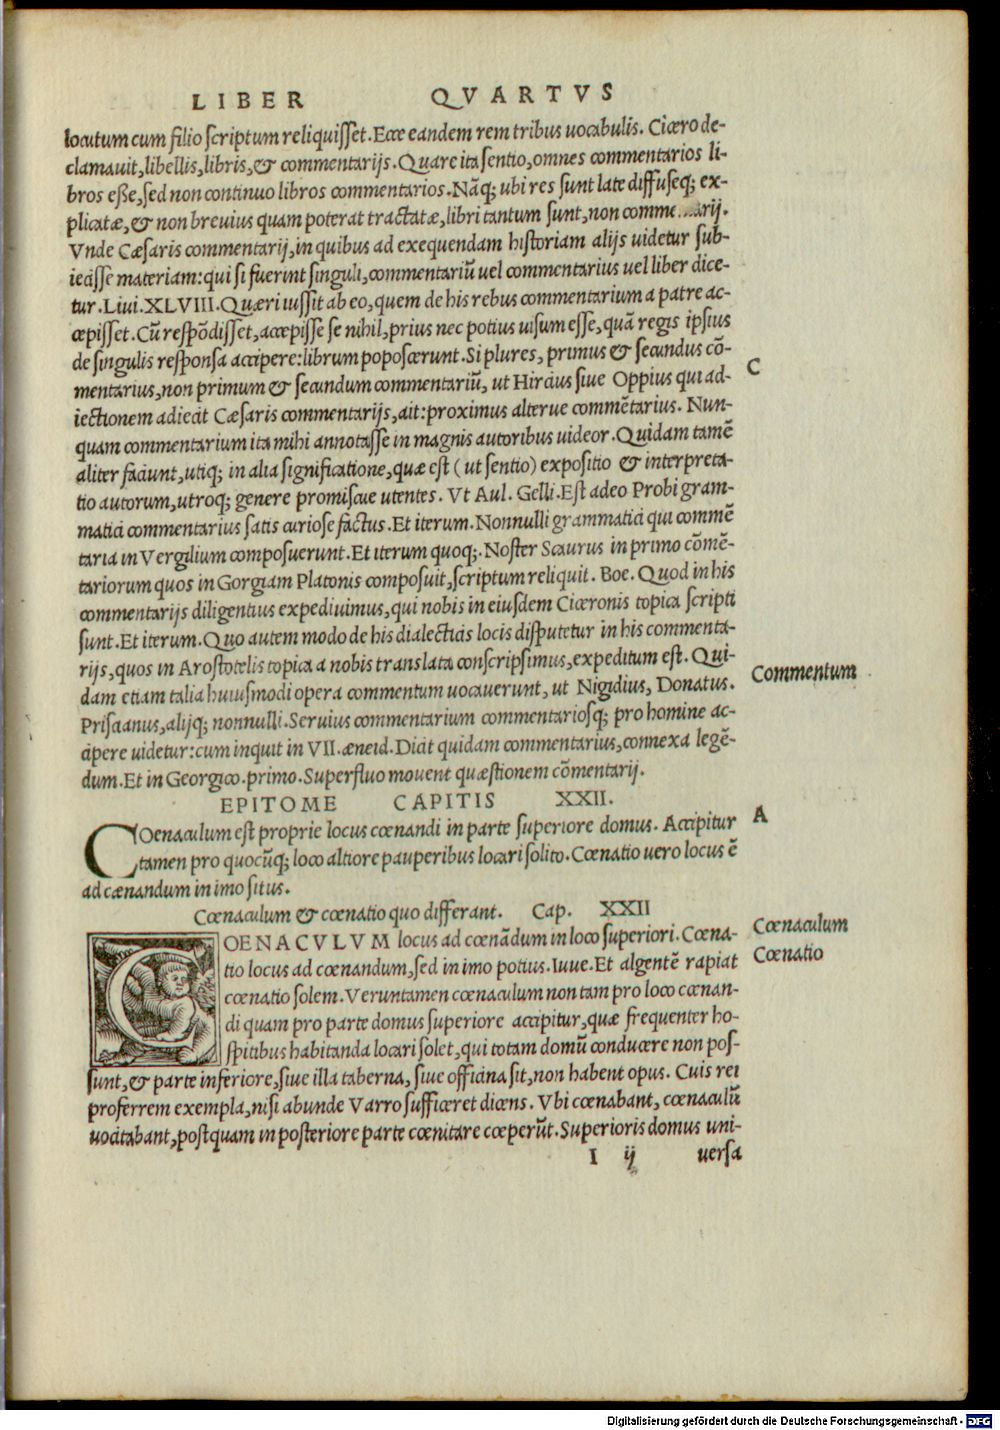 LIBER QVARTVS
locutum cum filio scriptum reliquisset. Ecce eandem rem tribus uocabulis. Cicero de-
clamauit, libellis, libris, & commentarijs. Quare ita sentio, omnes commentarios li-
bros esse, sed non continuo libros commentarios. Nāq; ubi res sunt late diffuseq; ex-
plicatæ, & non breuius quam poterat tractatæ, libri tantum sunt, non comme...arij.
Vnde Cæsaris commentarij, in quibus ad exequendam historiam alijs uidetur sub-
iecisse materiam: qui si fuerint singuli, commentariū uel commentarius uel liber dice-
tur. Liui. XLVIII. Quæri iussit ab eo, quem de his rebus commentarium a patre ac-
cepisset. Cū respōdisset, accepisse se nihil, prius nec potius uisum esse, quā regis ipsius
de singulis responsa accipere: librum poposcerunt. Si plures, primus & secundus cō-
C
mentarius, non primum & secundum commentariū, ut Hircius siue Oppius qui ad-
iectionem adiecit Cæsaris commentarijs, ait: proximus alterue commētarius. Nun-
quam commentarium ita mihi annotasse in magnis autoribus uideor. Quidam tamē
aliter faciunt, utiq; in alia significatione, quæ est (ut sentio) expositio & interpreta-
tio autorum, utroq; genere promiscue utentes. Vt Aul. Gelli. Est adeo Probi gram-
matici commentarius satis curiose factus. Et iterum. Nonnulli grammatici qui commē
taria in Vergilium composuerunt. Et iterum quoq;. Noster Scaurus in primo cōmē-
tariorum quos in Gorgiam Platonis composuit, scriptum reliquit. Boe. Quod in his
commentarijs diligentius expediuimus, qui nobis in eiusdem Ciceronis topica scripti
sunt. Et iterum. Quo autem modo de his dialecticis locis disputetur in his commenta-
rijs, quos in Arostotelis topica a nobis translata conscripsimus, expeditum est. Qui-
Commentum
dam etiam talia huiusmodi opera commentum uocauerunt, ut Nigidius, Donatus.
Priscianus, alijq; nonnulli. Seruius commentarium commentariosq; pro homine ac-
cipere uidetur: cum inquit in VII. æneid. Dicit quidam commentarius, connexa legē-
dum. Et in Georgico. primo. Superfluo mouent quæstionem cōmentarij.
EPITOME CAPITIS XXII.
A
COenaculum est proprie locus cœnandi in parte superiore domus. Accipitur
tamen pro quocūq; loco altiore pauperibus locari solito. Cœnatio uero locus ē
ad cænandum in imo situs.
Cœnaculum & cœnatio quo differant. Cap. XXII
Cœnaculum
COENACVLVM locus ad cœnādum in loco superiori. Cœna-
Cœnatio
tio locus ad cœnandum, sed in imo potius. Iuue. Et algentē rapiat
cœnatio solem. Veruntamen cœnaculum non tam pro loco cœnan-
di quam pro parte domus superiore accipitur, quæ frequenter ho-
spitibus habitanda locari solet, qui totam domū conducere non pos-
sunt, & parte inferiore, siue illa taberna, siue officina sit, non habent opus. Cuis rei
proferrem exempla, nisi abunde Varro sufficeret dicens. Vbi cœnabant, cœnaculū
uocitabant, postquam in posteriore parte cœnitare cœperūt. Superioris domus uni-
I ij uersa
Digitalisierung gefördert durch die Deutsche Forschungsgemeinschaft - DFG